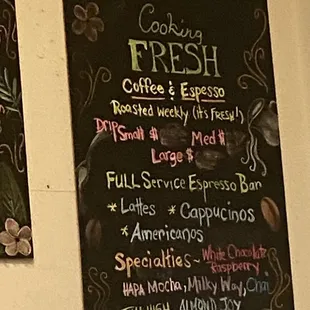 Cooking
FRESH
Coffee & Espesso
Roasted weekly (its FRESH!)
Drip Small $ Med $
Large $
FULL Service Espresso Bar
* Lattes * Cappucinos
* Americanos
Specialties - White Chocolate
Raspberry
HAPA Mocha, Milky Way, Chai
HIGH, ALMOND JOY